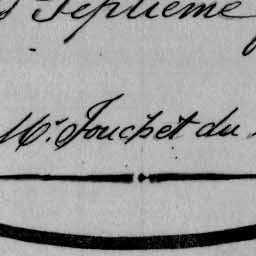 Septieme
Mr. Fouchet du